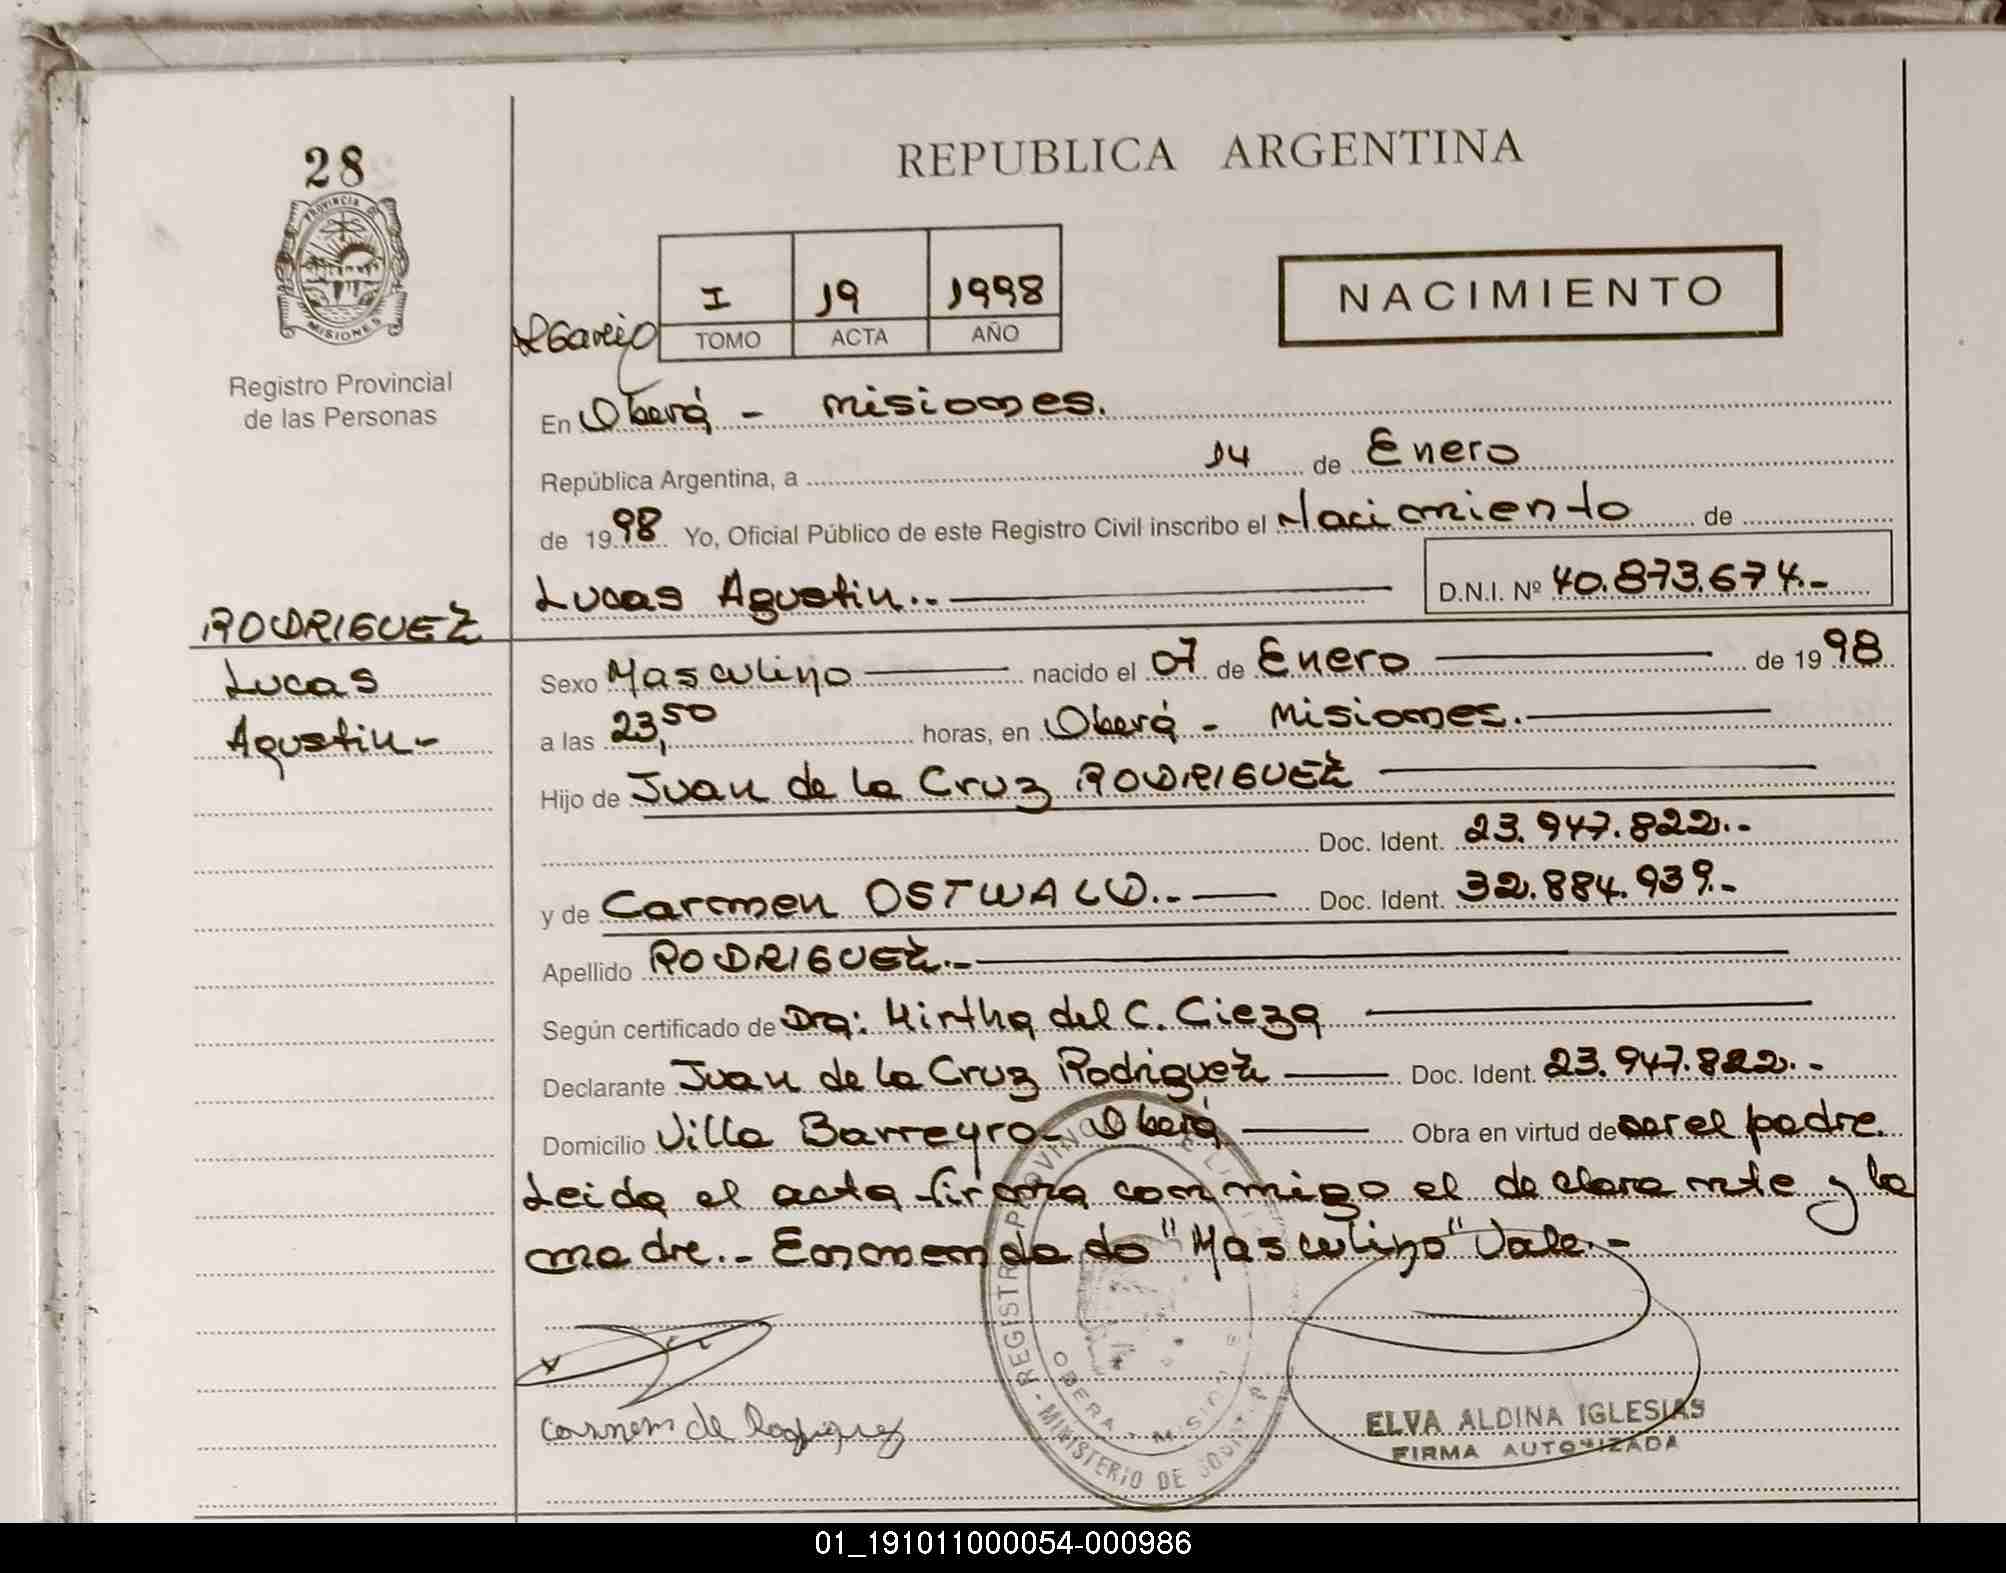 28
PROVINCIA DE
MISIONES
Registro Provincial
de las Personas
REPUBLICA ARGENTINA
I 19 1998
TOMO ACTA AÑO
NACIMIENTO
En Oberá - Misiones.
República Argentina, a 14 de Enero
de 1998 Yo, Oficial Público de este Registro Civil inscribo el Nacimiento de
Lucas Agustin.- D.N.I. Nº 40.873.674.-
RODRIGUEZ
Lucas
Agustin.-
Sexo Masculino nacido el 07 de Enero de 1998
a las 23,50 horas, en Oberá - Misiones.-
Hijo de Juan de la Cruz RODRIGUEZ
Doc. Ident. 23.947.822.-
y de Carmen OSTWALD.- Doc. Ident. 32.884.939.-
Apellido RODRIGUEZ.-
Según certificado de Dra: Mirtha del C. Cieza
Declarante Juan de la Cruz Rodriguez Doc. Ident. 23.947.822.-
Domicilio Villa Barreyro - Oberá Obra en virtud de ser el padre.
Leida el acta firma conmigo el declarante y la
madre.- Enmendado "Masculino" Vale.-
Carmen de Rodriguez
REGISTRO PROVINCIAL DE L
OBERA - MISIONES
MINISTERIO DE GOB
ELVA ALDINA IGLESIAS
FIRMA AUTORIZADA
01_191011000054-000986